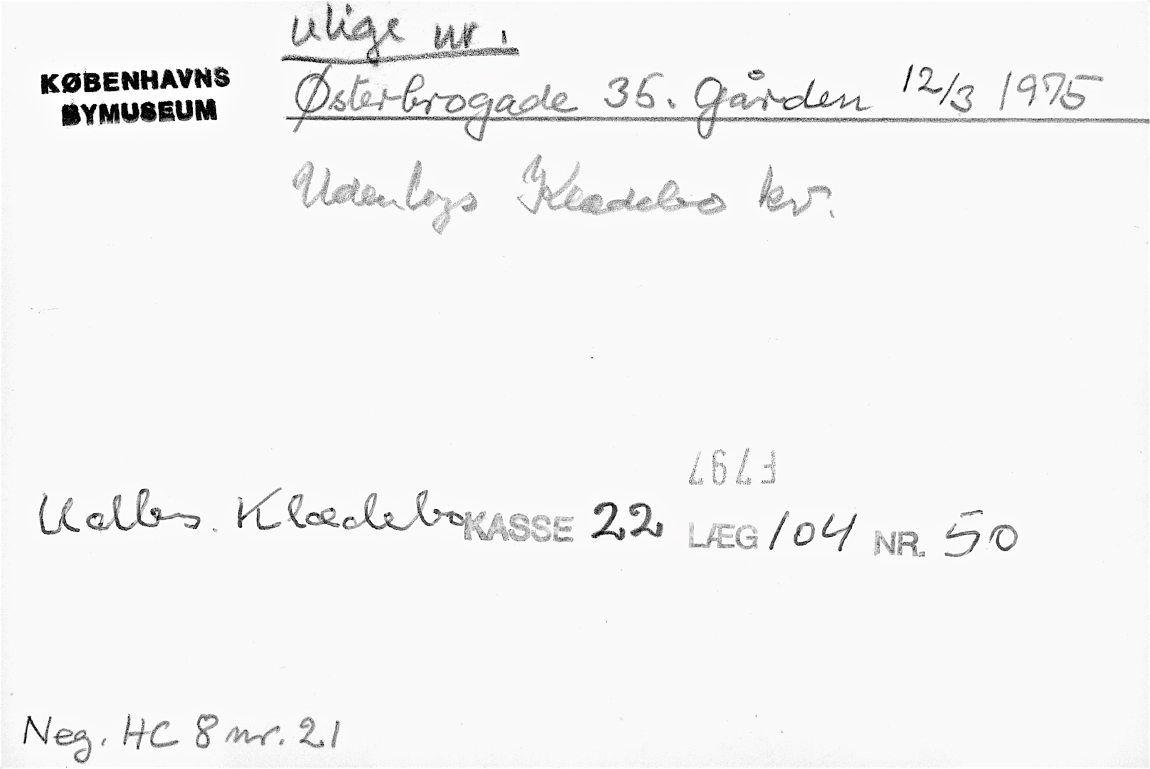 ulige nr.
KØBENHAVNS
BYMUSEUM
Østerbrogade 35. Gården 12/3 1975
Udenbys Klædebo kv.
F 797
Udbs. Klædebo KASSE 22 LÆG 104 NR. 50
Neg. HC 8 nr. 21